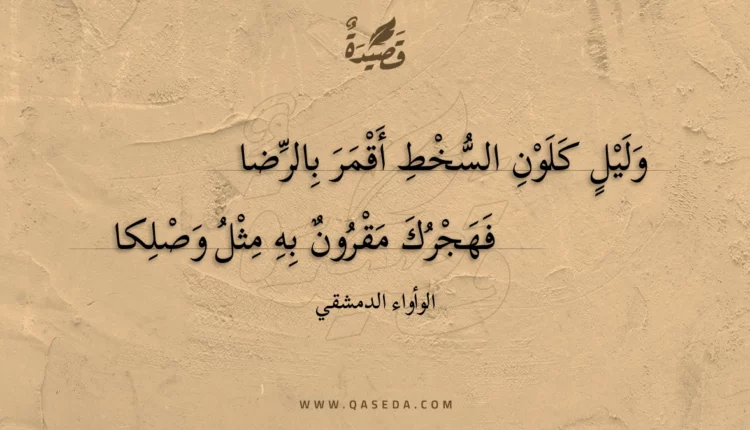 قَصِيدَةٌ
وَلَيْلٍ كَلَوْنِ السُّخْطِ أَقْمَرَ بِالرِّضا
فَهَجْرُكَ مَقْرُونٌ بِهِ مِثْلُ وَصْلِكا
الوأواء الدمشقي
WWW.QASEDA.COM